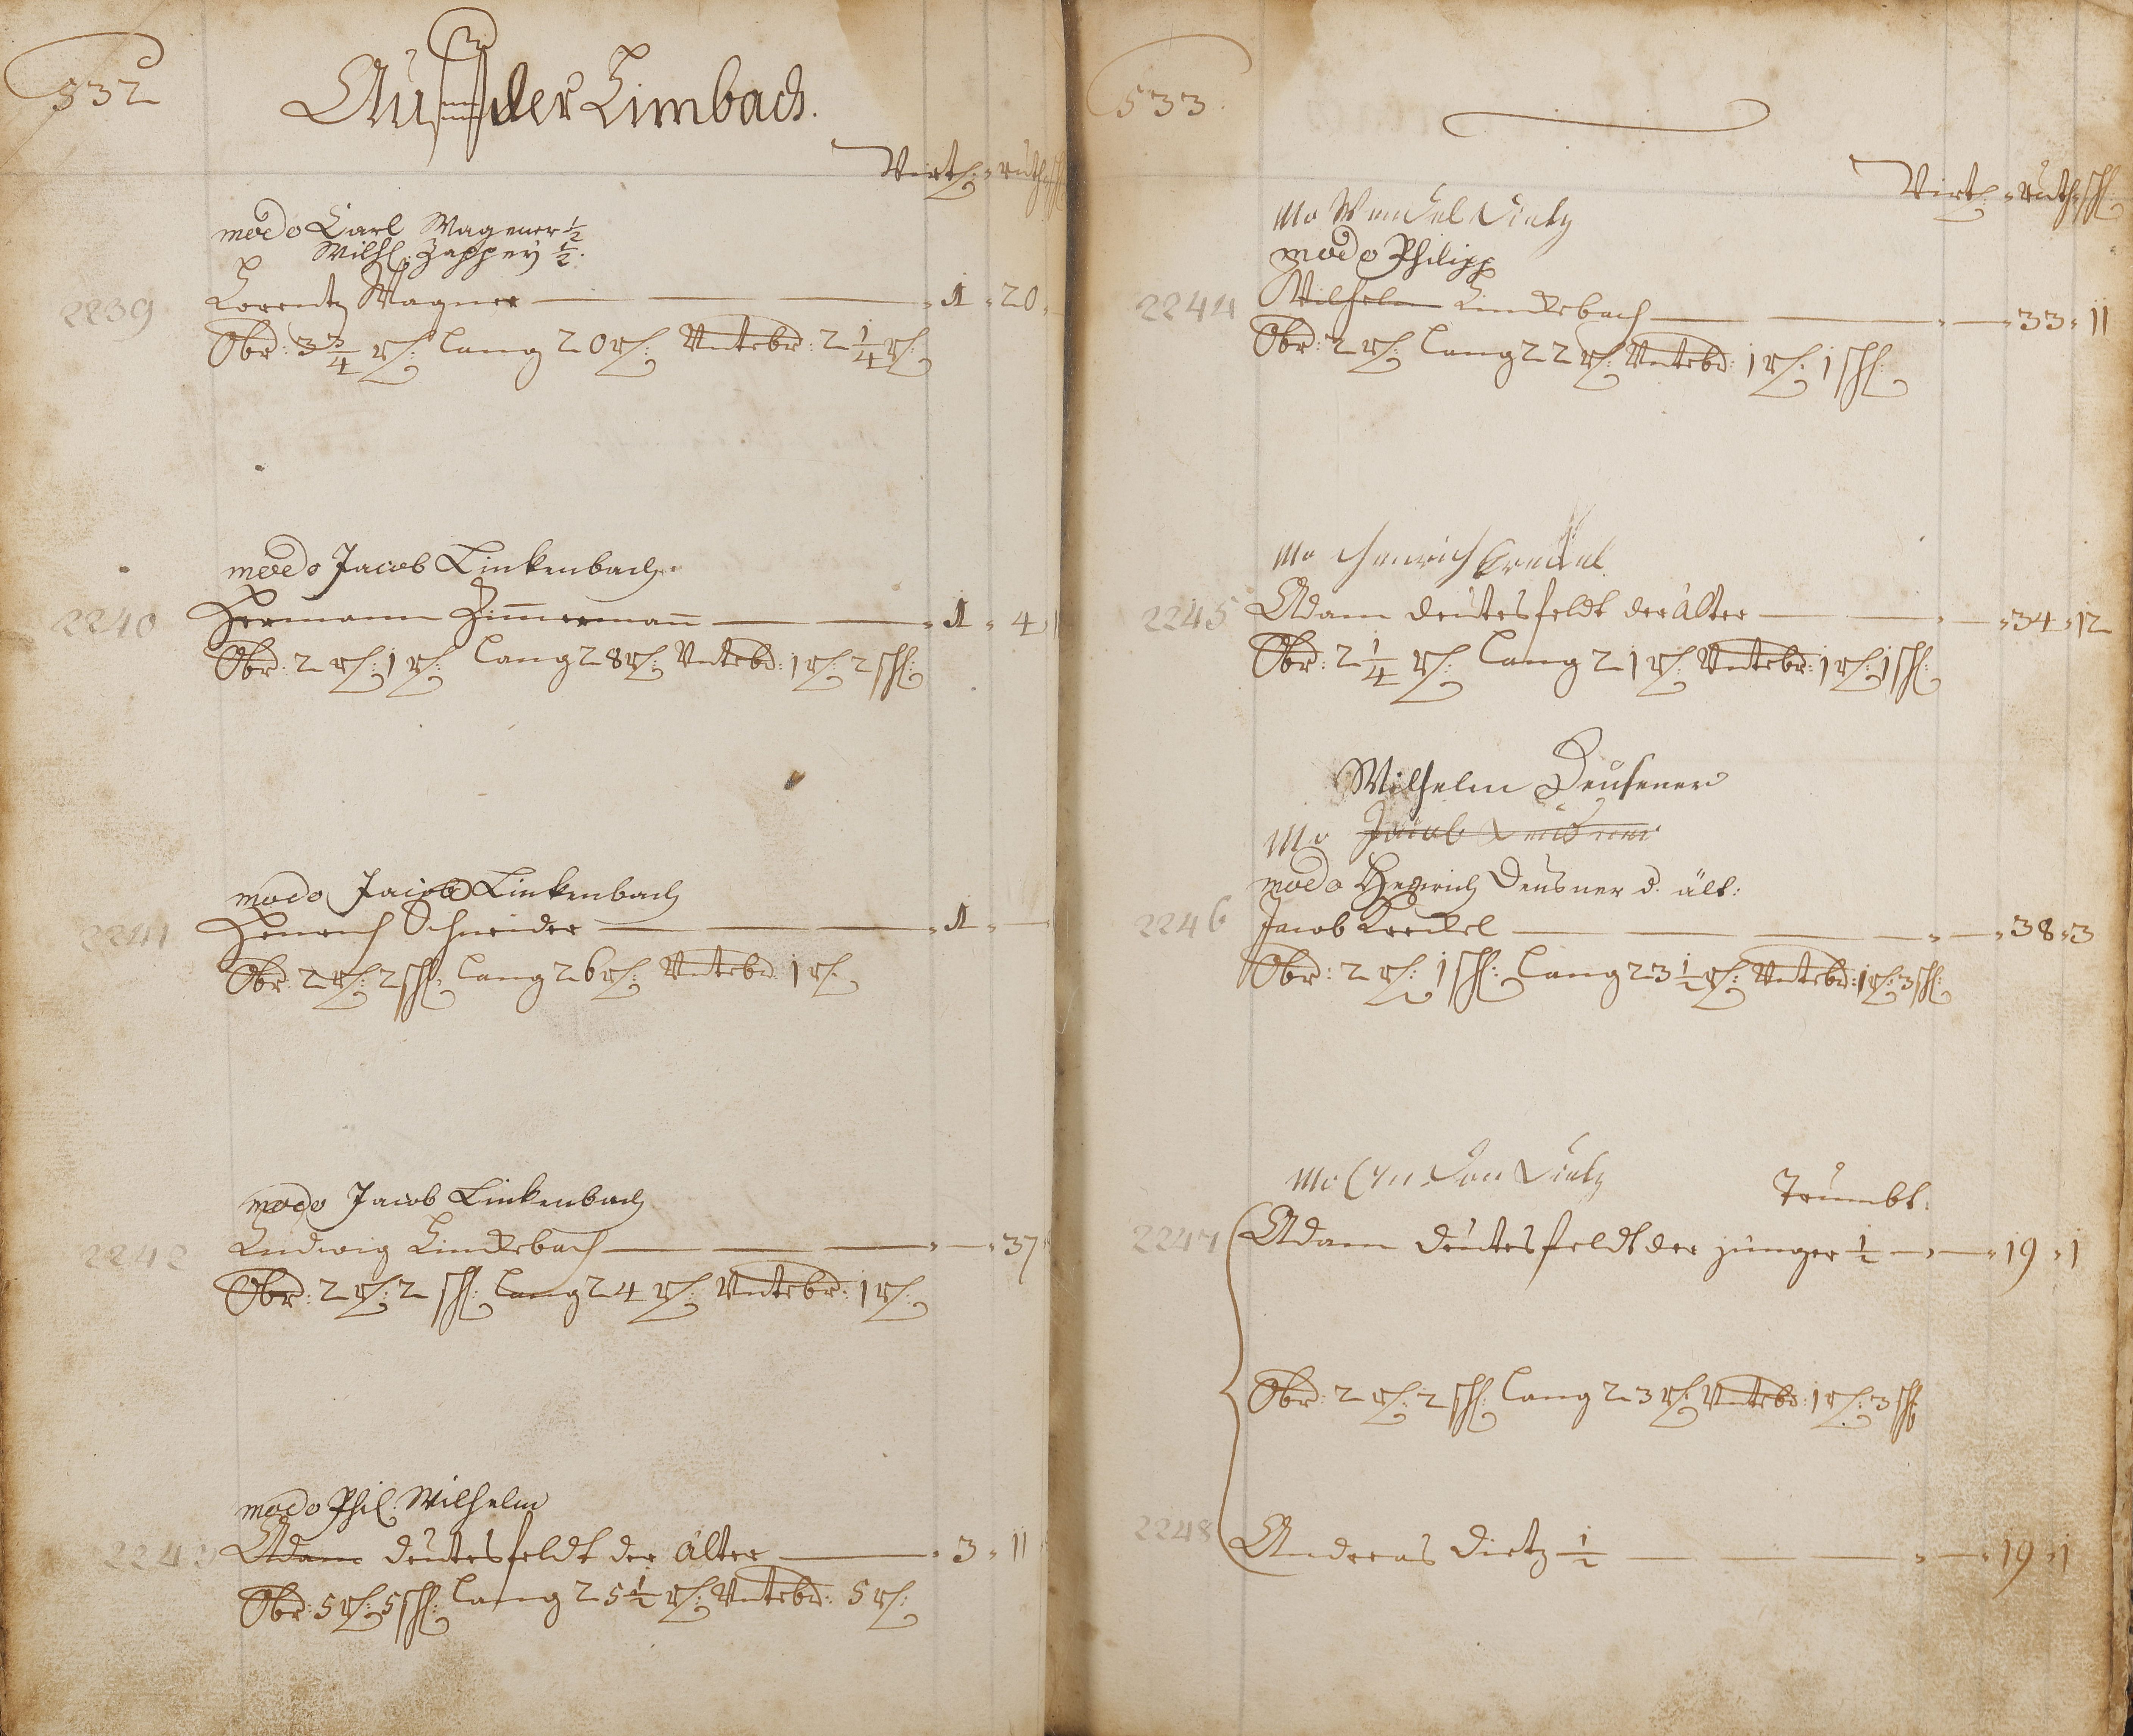 532
Auff der Limbach.
Virtl: ruth
modo Carl Wagener ½
Wilhl. Zappey ½.
2239 Lorentz Wagner — 1 . 20
Obr: 3¾ rh: lang 20 rh: Untebr: 2¼ rh:
modo Jacob Linkenbach.
2240 Hermann Zim̄ermañ — 1 . 4
Obr: 2 rh: 1 rh: lang 28 rh: Untebr: 1 rh: 2 sch:
modo Jacob Linkenbach
2241 Henrich Schneider — 1 . —
Obr: 2 rh: 2 sch: lang 26 rh: Untebr: 1 rh:
modo Jacob Linkenbach
2242 Ludwig Linckebach — 37
Obr: 2 rh: 2 sch: lang 24 rh: Untebr: 1 rh:
modo Phil. Wilhelm
2243 Adam deutesfeldt der älter — 3 . 11
Obr: 5 rh: 5 sch: lang 25½ rh: Untebr: 5 rh:
533.
Virtl: ruth sch:
Mo Wendel Dietz
modo Philipp
2244 Wilhelm Linckebach — 33 . 11
Obr: 2 rh: lang 22 rh: Untebr: 1 rh: 1 sch:
Mo Henrich
2245 Adam deutesfeldt der älter — 34 . 12
Obr: 2¼ rh: lang 21 rh: Untebr: 1 rh: 1 sch:
Wilhelm Deusener
Mo Jacob
modo Henrich Deusner d. ält:
2246 Jacob Kreckel — 38 . 3
Obr: 2 rh: 1 sch: lang 23½ rh: Untebr: 1 rh: 3 sch:
Mo Dietz
Trumbt.
2247 Adam deutesfeldt der jünger ½ — 19 . 1
Obr: 2 rh: 2 sch: lang 23 rh: Untebr: 1 rh: 3 sch:
2248 Andreas Dietz ½ — 19 . 1